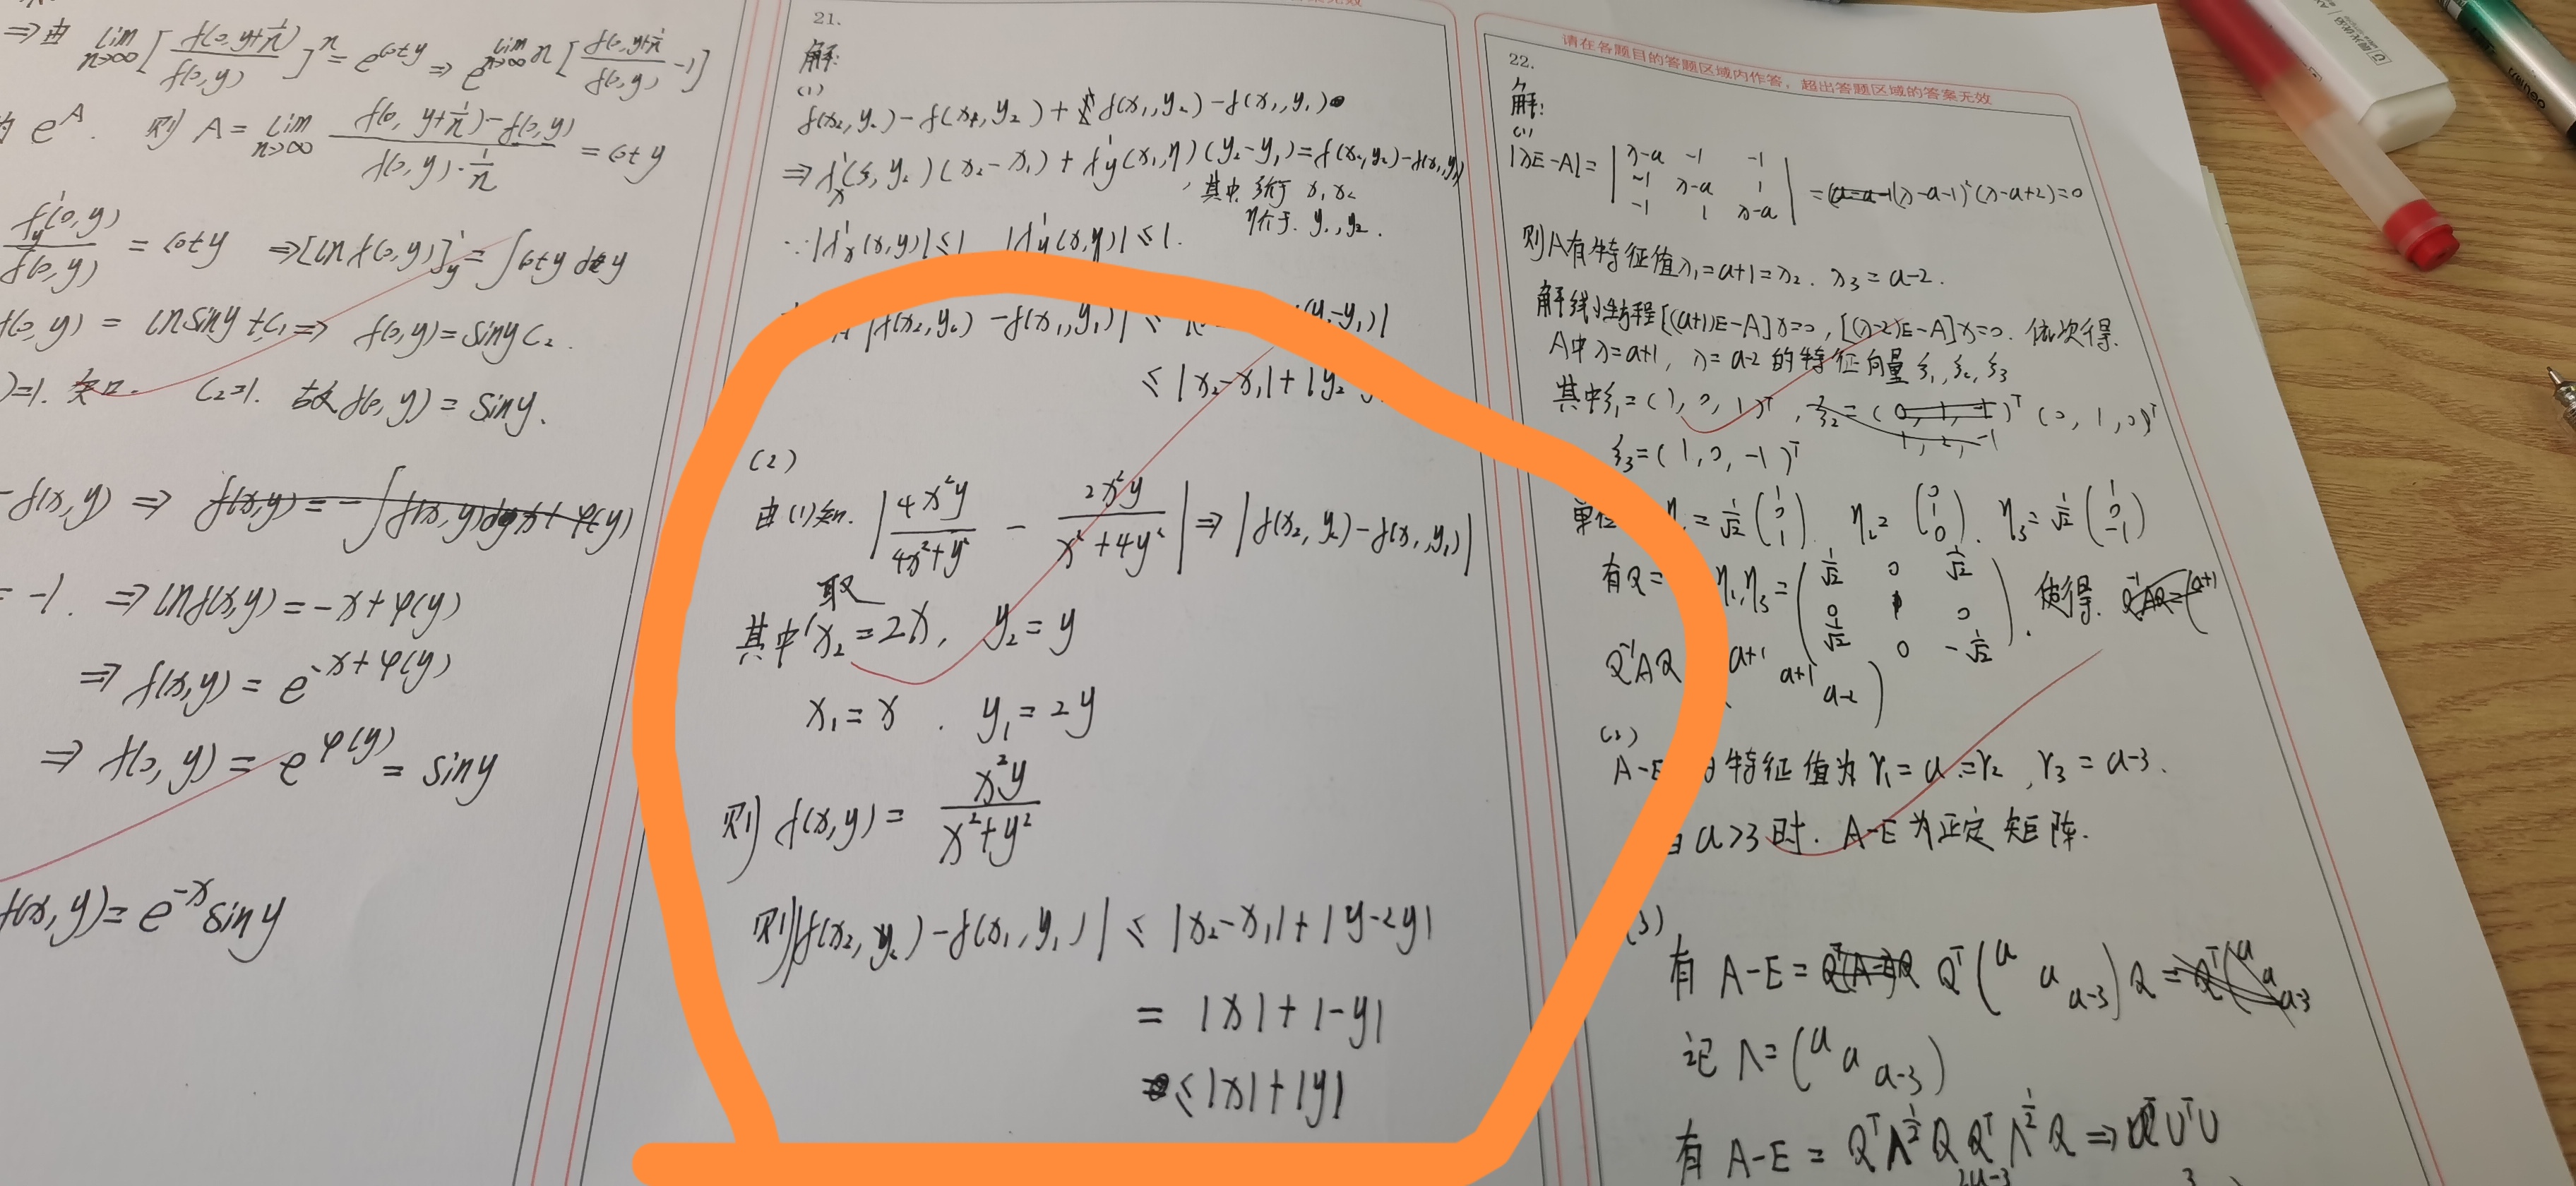 ⇒由 lim n→∞ [f(0,y+1/n)/f(0,y)]^n = e^cot y ⇒ e^lim n→∞ n[f(0,y+1/n)/f(0,y) -1]
e^A. 则 A = lim n→∞ (f(0, y+1/n) - f(0,y))/(f(0,y)·1/n) = cot y
f'y(0,y)/f(0,y) = cot y ⇒[ln f(0,y)]'y = ∫cot y dy
f(0,y) = ln sin y + C₁ ⇒ f(0,y) = sin y C₂.
)=1. 知 C₂=1. 故 f(0,y) = sin y.
-f(x,y) ⇒
= -1. ⇒ ln f(x,y) = -x+φ(y)
⇒ f(x,y) = e^-x+φ(y)
⇒ f(0,y) = e^φ(y) = sin y
f(x,y) = e^-x sin y
21.
解:
(1)
f(x₂,y₂) - f(x₁,y₂) + f(x₁,y₂) - f(x₁,y₁)
⇒ f'x(ξ,y₂)(x₂-x₁) + f'y(x₁,η)(y₂-y₁) = f(x₂,y₂) - f(x₁,y₁)
,其中 ξ介于 x₁ x₂
η介于. y₁, y₂.
∵ |f'x(x,y)| ≤ 1 |f'y(x,y)| ≤ 1.
|f(x₂,y₂) - f(x₁,y₁)| ≤ (y₂-y₁)|
≤ |x₂-x₁| + |y₂
(2)
由(1)知. |4x²y/(4x²+y²) - 2x²y/(x²+4y²)| ⇒ |f(x₂,y₂) - f(x₁,y₁)|
其中取 x₂ = 2x, y₂ = y
x₁ = x . y₁ = 2y
则 f(x,y) = x²y/(x²+y²)
则 |f(x₂,y₂) - f(x₁,y₁)| ≤ |x₂-x₁| + |y-2y|
= |x| + |-y|
≤ |x| + |y|
请在各题目的答题区域内作答，超出答题区域的答案无效
22.
解:
(1)
|λE-A| = | λ-a -1 -1
-1 λ-a 1
-1 1 λ-a | = (λ-a-1)²(λ-a+2)=0
则A有特征值λ₁=a+1=λ₂. λ₃=a-2.
解线性方程[(a+1)E-A]x=0, [(λ-2)E-A]x=0. 依次得.
A中λ=a+1, λ=a-2的特征向量 ξ₁,ξ₂,ξ₃
其中ξ₁=(1,0,1)ᵀ, ξ₂=(0,1,0)ᵀ
ξ₃=(1,0,-1)ᵀ
单位 = 1/√2 (1 0 1). η₂=(0 1 0). η₃=1/√2 (1 0 -1)
有Q= η₂,η₃ = (1/√2 0 1/√2
0 1 0
1/√2 0 -1/√2). 使得.
Q⁻¹AQ a+1 a+1 a-2)
(2)
A-E 特征值为 γ₁=a=γ₂, γ₃=a-3.
a>3时. A-E为正定矩阵.
(3)
有 A-E = Qᵀ(a a a-3)Q =
记 Λ=(a a a-3)
有 A-E = QᵀΛ^½QQᵀΛ^½Q ⇒ UᵀU